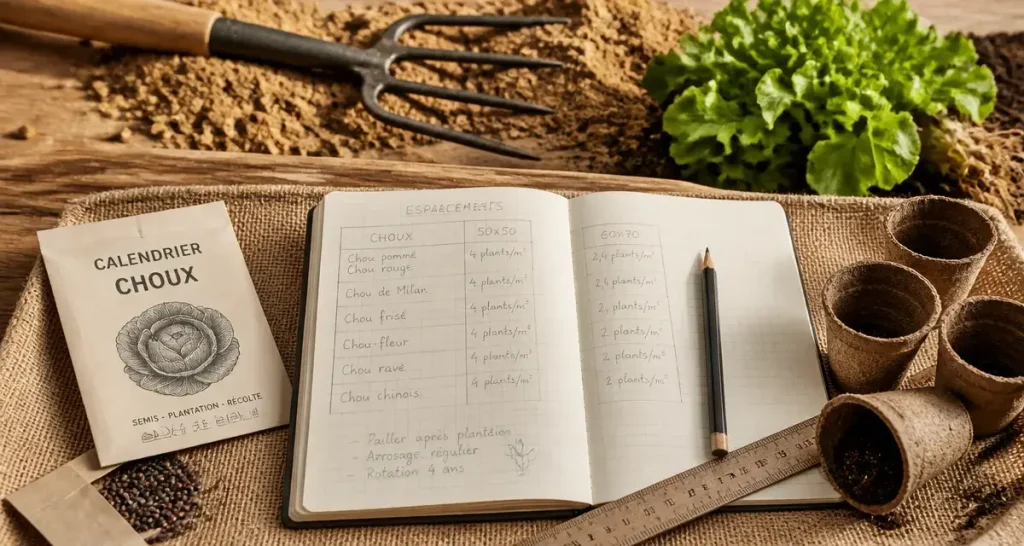 CALENDRIER
CHOUX
SEMIS - PLANTATION - RÉCOLTE
ESPACEMENTS
CHOUX 50x50 60x70
Chou pommé 4 plants/m² 2,4 plants/m²
Chou rouge
Chou de Milan 4 plants/m² 2,4 plants/m²
Chou frisé 4 plants/m² 2, plants/m²
Chou-fleur 4 plants/m² 2. plants/m²
Chou ravé 4 plants/m² 2. plants/m²
Chou chinois 4 plants/m² 2. plants/m²
- Pailler après plantation
- Arrosage régulier
- Rotation 4 ans